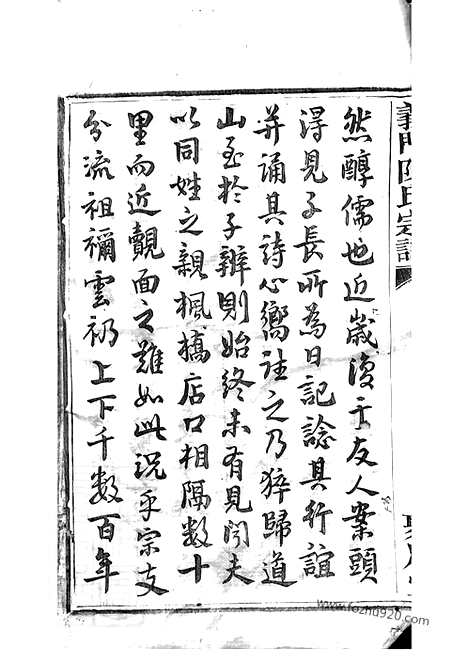 義門陳氏宗譜
然醇儒也近歲復于友人案頭
得見子長所為日記諗其行誼
并誦其詩心嚮往之乃猝歸道
山至於子辨則始終未有見聞夫
以同姓之親楓橋店口相隔數十
里而近覿面之難如此況乎宗支
分流祖禰雲礽上下千數百年
www.fozhu920.com